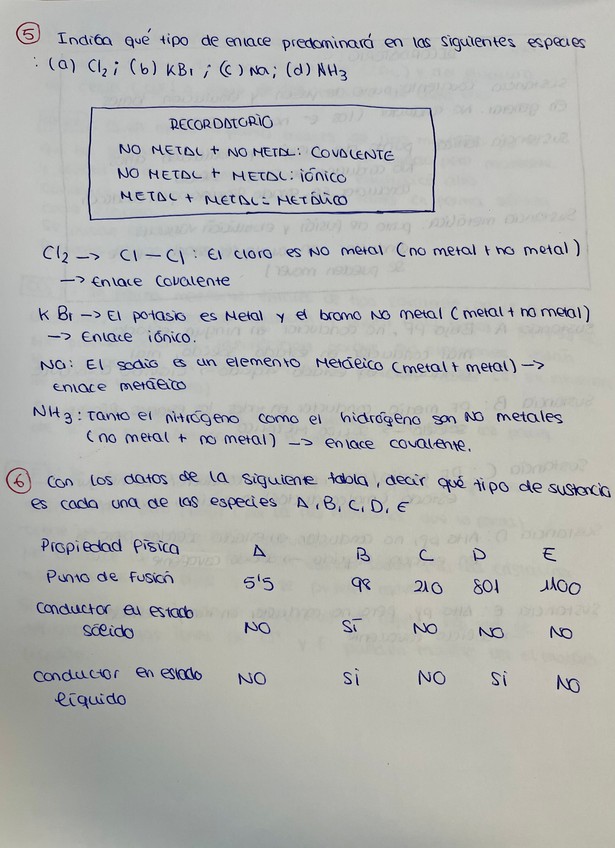 ⑤ Indica qué tipo de enlace predominará en las siguientes especies
: (a) Cl₂ ; (b) KBr ; (c) Na ; (d) NH₃
RECORDATORIO
NO METAL + NO METAL: COVALENTE
NO METAL + METAL: iÓnico
METAL + METAL: METÁLICO
Cl₂ —> Cl — Cl : El cloro es NO metal (no metal + no metal)
—> Enlace covalente
K Br —> El potasio es Metal y el bromo NO metal (metal + no metal)
—> Enlace iónico.
Na: El sodio es un elemento Metálico (metal + metal) —>
enlace metálico
NH₃ : Tanto el nitrógeno como el hidrógeno son NO metales
(no metal + no metal) —> enlace covalente.
⑥ Con los datos de la siguiente tabla, decir qué tipo de sustancia
es cada una de las especies A, B, C, D, E
Propiedad Física A B C D E
Punto de Fusión 5'5 98 210 801 1100
Conductor en estado
sólido NO SÍ NO NO NO
Conductor en estado NO Si NO Si NO
líquido